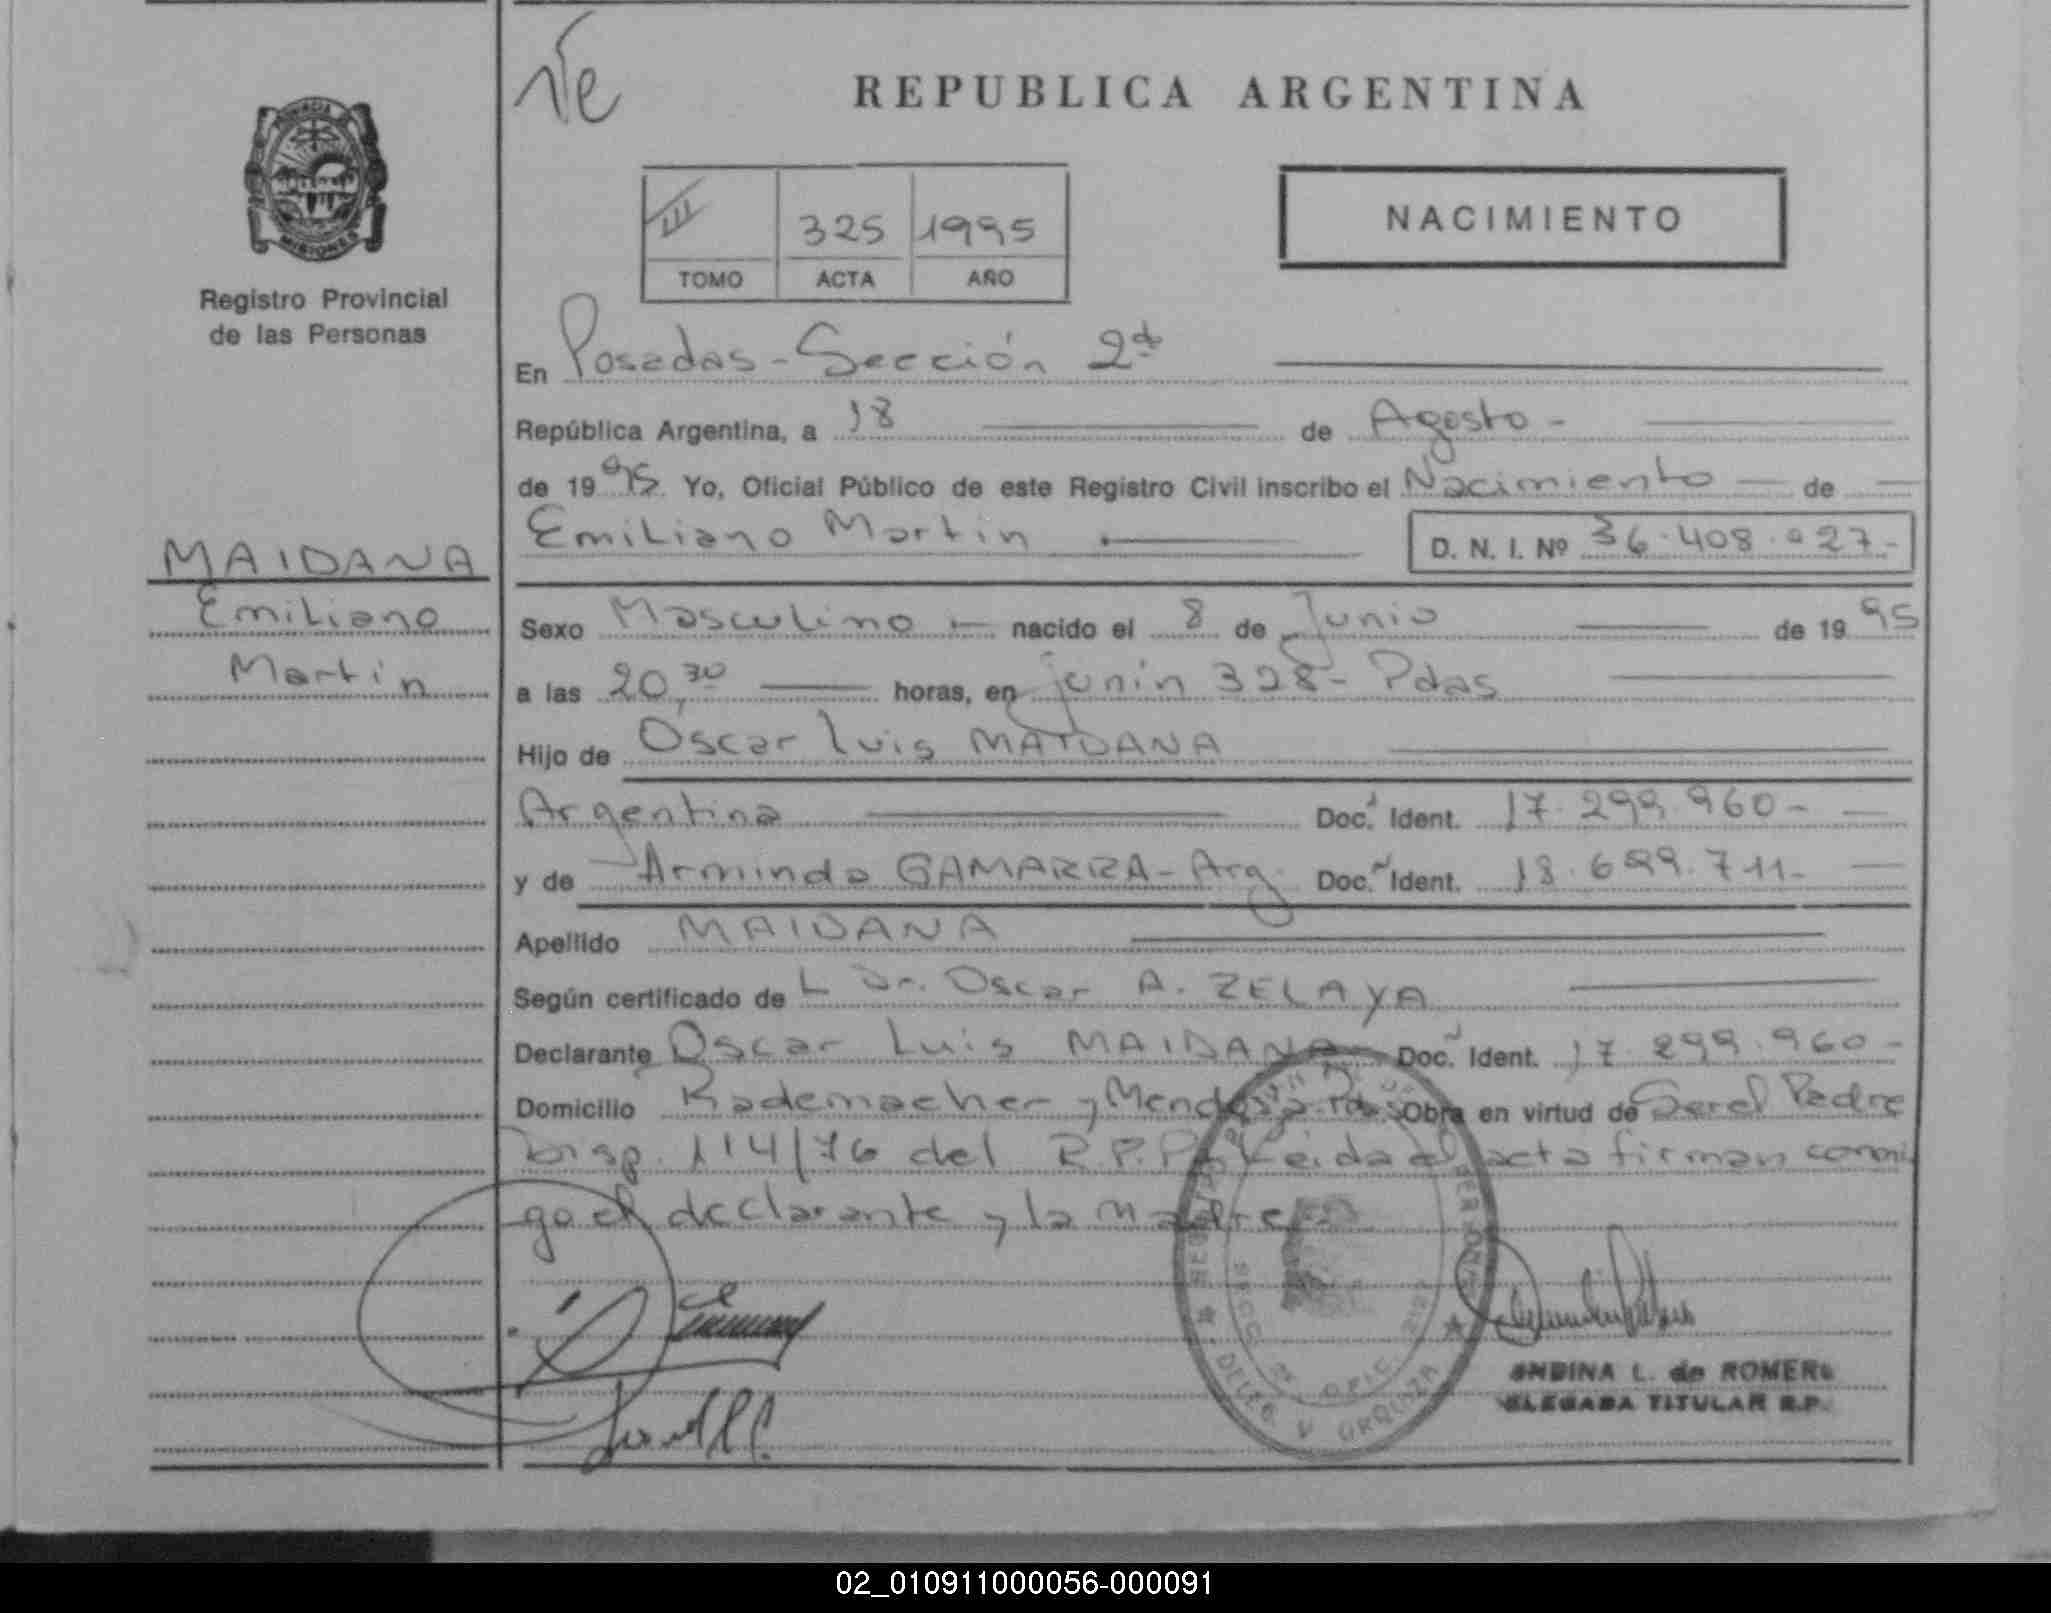 REPUBLICA ARGENTINA
PROVINCIA
MISIONES
Registro Provincial
de las Personas
III 325 1995
TOMO ACTA AÑO
NACIMIENTO
En Posadas - Sección 2ª
República Argentina, a 18 de Agosto -
de 1995 Yo, Oficial Público de este Registro Civil inscribo el Nacimiento de
Emiliano Martin D. N. I. Nº 36.408.027-
MAIDANA
Emiliano
Martin
Sexo Masculino nacido el 8 de Junio de 1995
a las 20,30 horas, en junin 328 - Pdas
Hijo de Oscar Luis MAIDANA
Argentina Doc. Ident. 17.299.960-
y de Arminda GAMARRA - Arg. Doc. Ident. 18.699.711-
Apellido MAIDANA
Según certificado de L Dr. Oscar A. ZELAYA
Declarante Oscar Luis MAIDANA Doc. Ident. 17.299.960-
Domicilio Rademacher y Mendoza Pdas Obra en virtud de Ser el Padre
Disp. 114/76 del R.P.P. Leida el acta firman conmi
go el declarante y la madre
DELEG. V. URQUIZA
L. de ROMERO
TITULAR R.P.
02_010911000056-000091